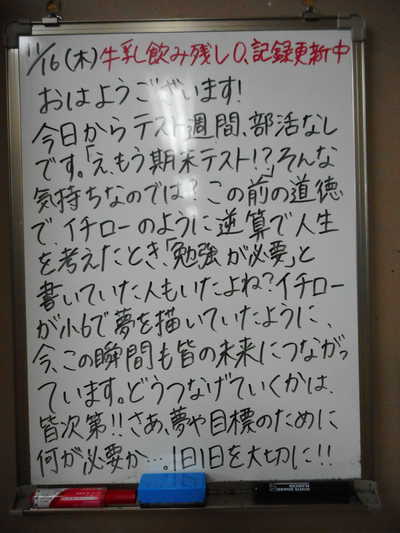 11/16(木)牛乳飲み残し0、記録更新中
おはようございます!
今日からテスト週間、部活なし
です。「え、もう期末テスト!?」そんな
気持ちなのでは?この前の道徳
で、イチローのように逆算で人生
を考えたとき、「勉強が必要」と
書いていた人もいたよね?イチロー
が小6で夢を描いていたように、
今、この瞬間も皆の未来につながっ
ています。どうつなげていくかは、
皆次第!!さあ、夢や目標のために
何が必要か…。1日1日を大切に!!